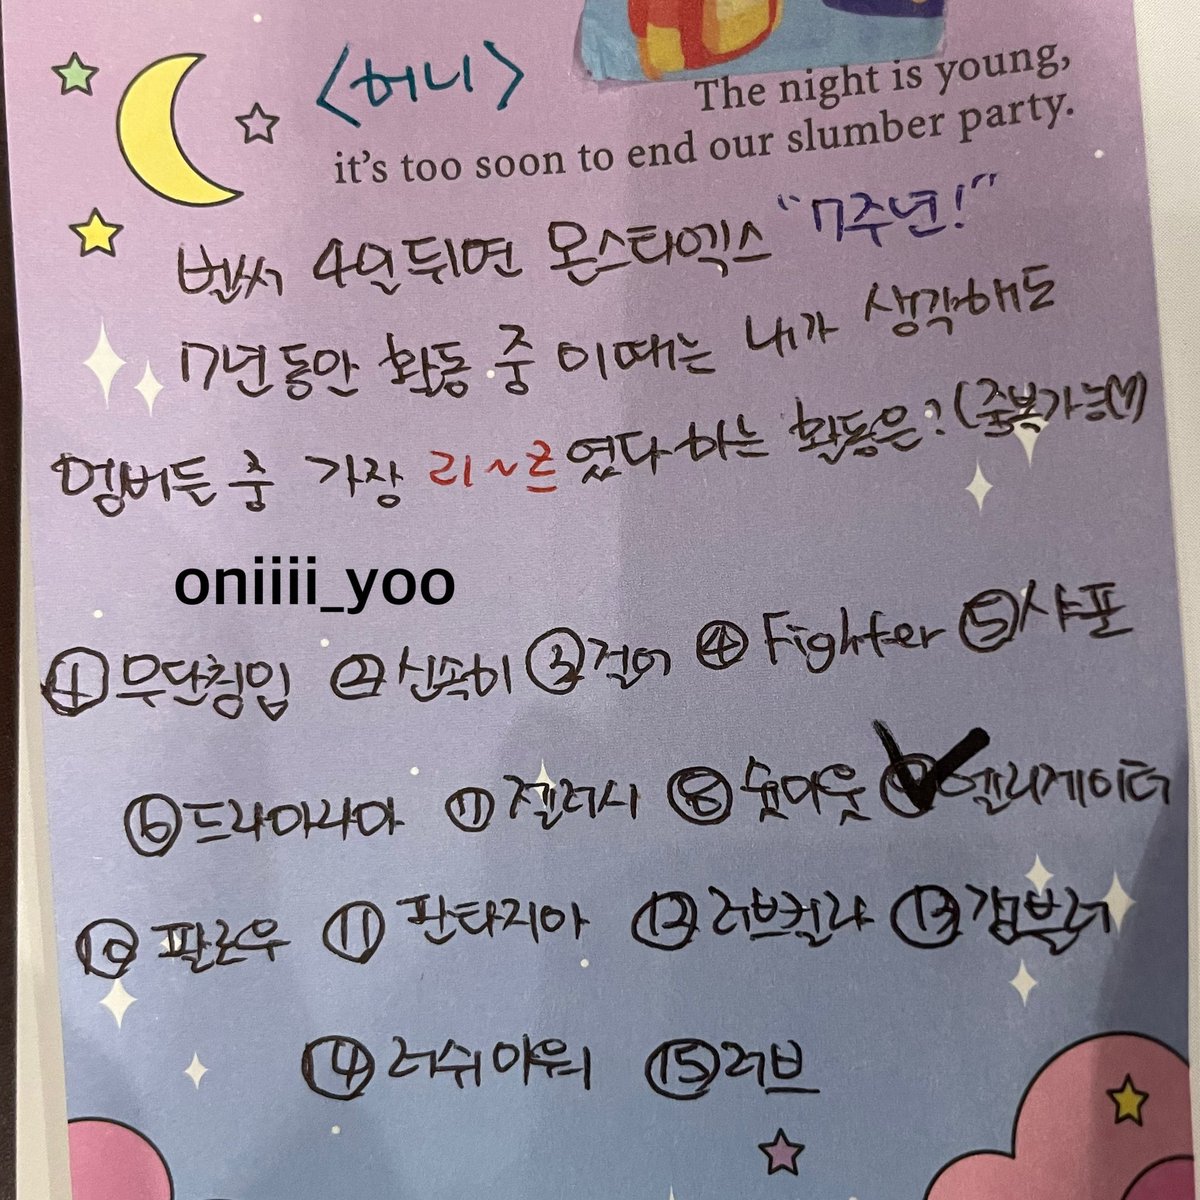 <허니>
The night is young,
it's too soon to end our slumber party.
벌써 4일뒤면 몬스타엑스 "7주년!"
7년동안 활동 중 이때는 내가 생각해도
멤버든 중 가장 리~즈였다 하는 활동은? (중복가능♡)
oniiii_yoo
① 무단침입 ② 신속히 ③ 걸어 ④ Fighter ⑤ 샤포
⑥ 드라마라마 ⑦ 젤러시 ⑧ 슛아웃 ⑨ 엘리게이터
⑩ 팔로우 ⑪ 판타지아 ⑫ 러브킬라 ⑬ 갬블러
⑭ 러쉬아워 ⑮ 러브